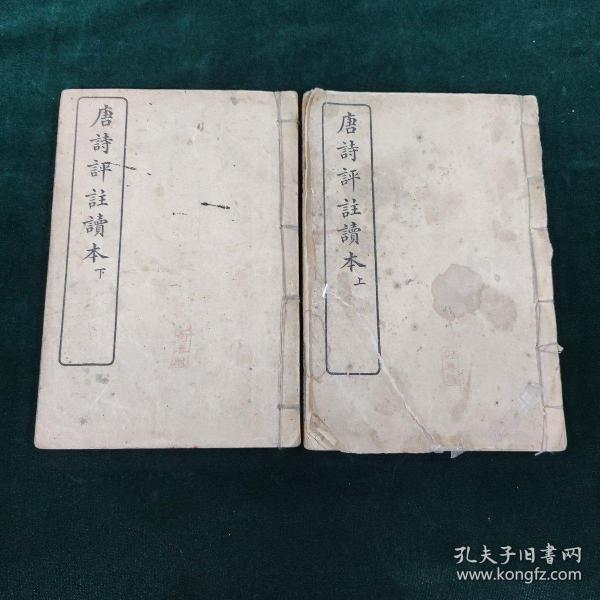 唐詩評註讀本上
唐詩評註讀本下
孔夫子旧书网
www.kongfz.com